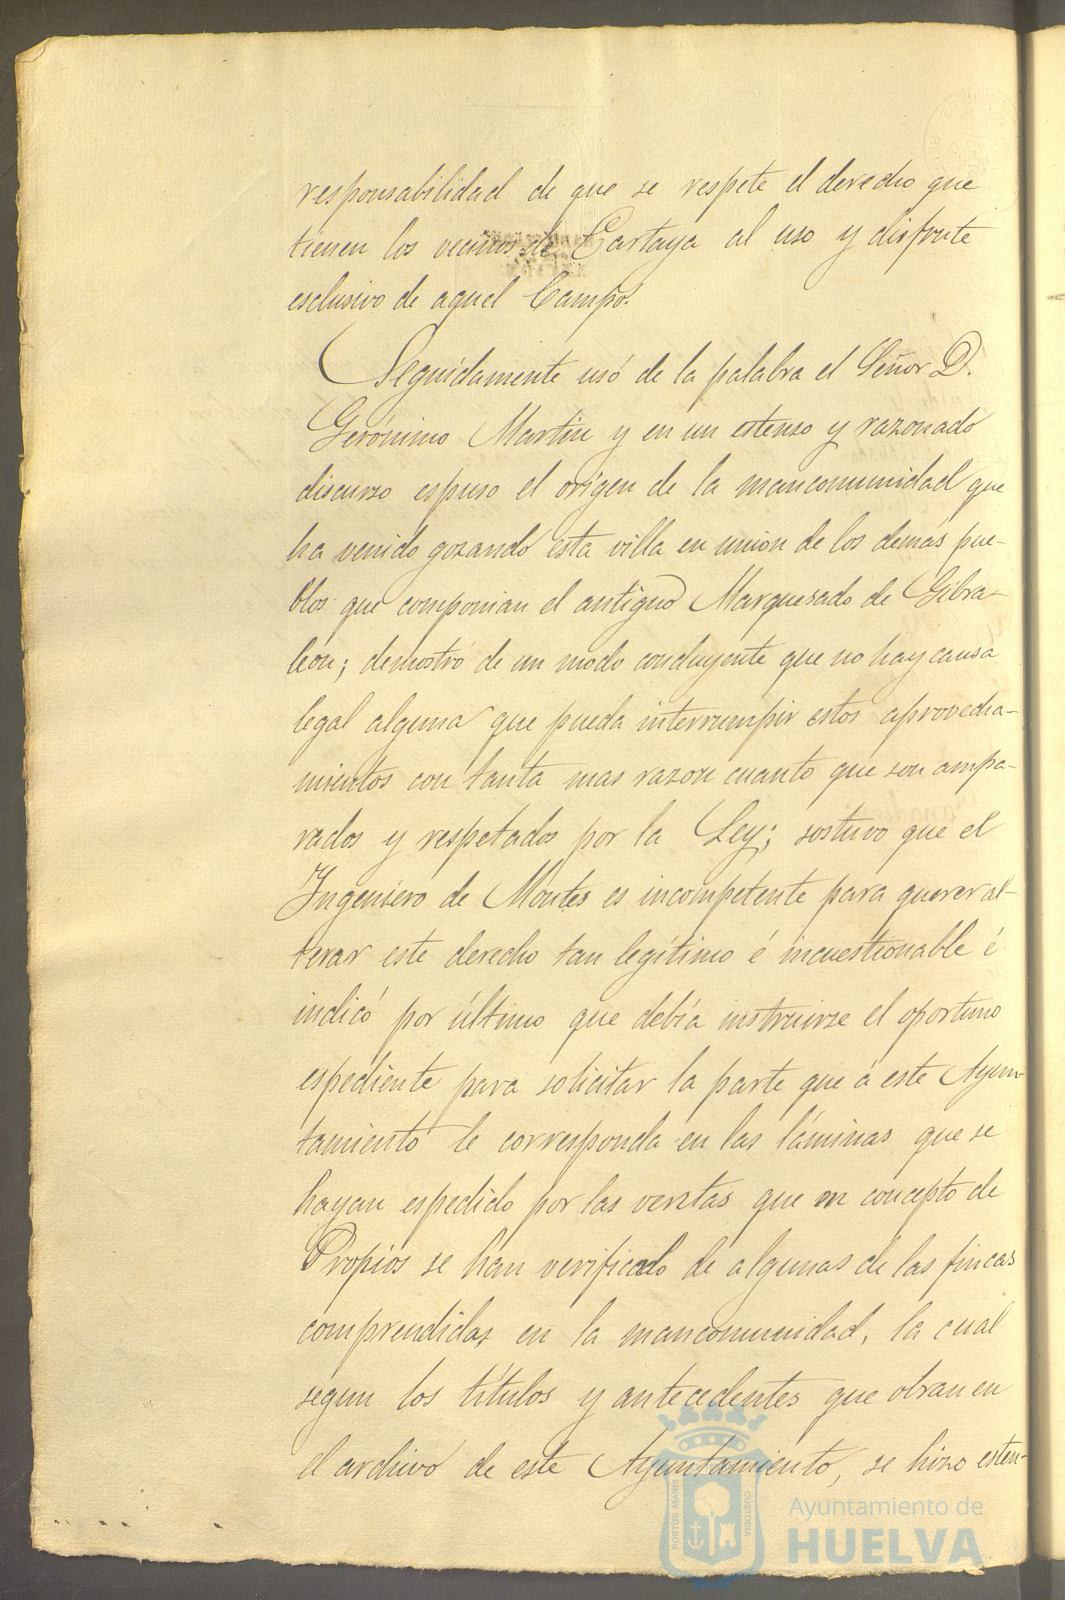 responsabilidad de que se respete el derecho que
tienen los vecinos de Cartaya al uso y disfrute
esclusivo de aquel Campo.
Seguidamente usó de la palabra el Señor D.
Gerónimo Martin y en un estenso y razonado
discurso espuso el origen de la mancomunidad que
ha venido gozando esta villa en union de los demas pue-
blos que componian el antiguo Marquesado de Gibra-
leon; demostró de un modo concluyente que no hay causa
legal alguna que pueda interrumpir estos aprovecha-
mientos con tanta mas razon cuanto que son ampa-
rados y respetados por la Ley; sostuvo que el
Ingeniero de Montes es incompetente para querer al-
terar este derecho tan legítimo é incuestionable é
indicó por último que debía instruirse el oportuno
espediente para solicitar la parte que á este Ayun-
tamiento le corresponda en las láminas que se
hayan espedido por las ventas que en concepto de
Propios se han verificado de algunas de las fincas
comprendidas en la mancomunidad, la cual
segun los títulos y antecedentes que obran en
el archivo de este Ayuntamiento, se hizo esten-
PORTUS MARIS
CUSTODIA
Ayuntamiento de
HUELVA